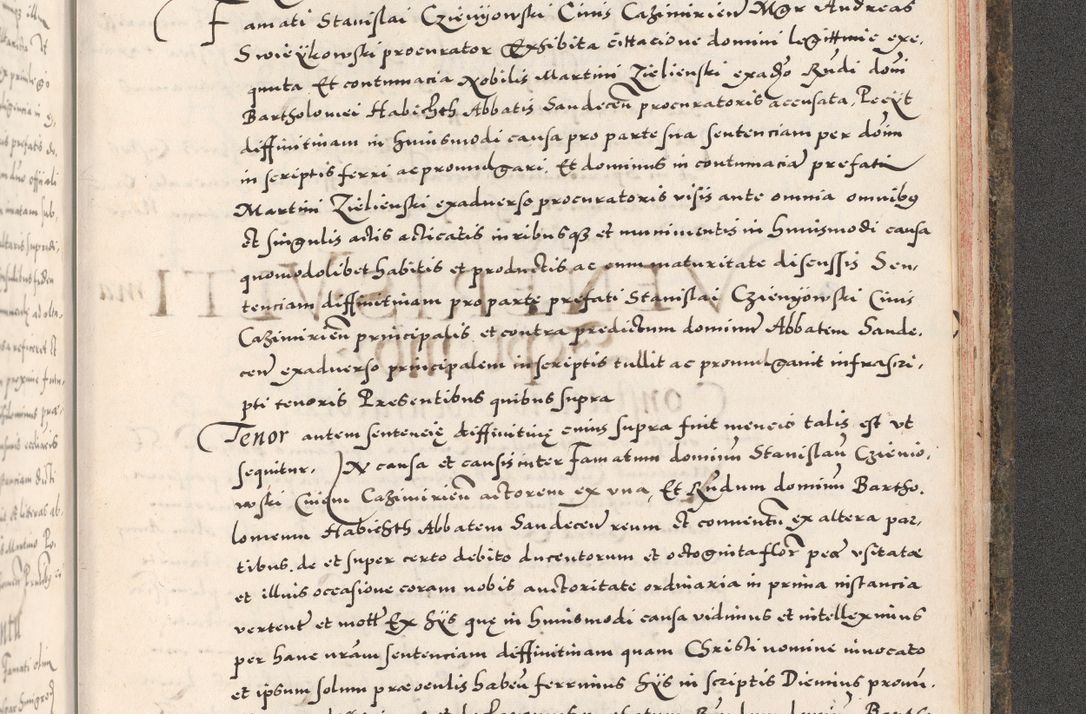 Famati Stanislai Czienyowski Ciuis Casimirien Mgr Andreas
Swieykowski procurator Exhibita cittacione domini legittimie exe,
quuta Et contumacia Nobilis Martini Zielienski exadso Rndi domi
Bartholomei Habichth Abbatis Sandecen procuratoris accusata, Pecyt
diffinitiuam in huiusmodi causa pro parte sua sententiam per dom
in scriptis ferri ac promulgari, Et dominus in contumacia prefati
Martini Zielienski exaduerso procuratoris visis ante omnia omnibus
et singulis actis acticatis in ribusque et munimentis in huiusmodi causa
quomodolibet habitis et productis ac cum maturitate discussis Sen,
tenciam diffinitiuam pro parte prefati Stanislai Czienyowski Ciuis
Casimirien principalis et contra predictum dominum Abbatem Sande,
cen exaduerso principalem in scriptis tullit ac promulgauit infrascri,
pti tenoris Presentibus quibus supra
Tenor autem sentencię diffinitiuę cuius supra fuit mencio talis est vt
sequitur, In causa et causis inter famatum dominum Stanislaum Czienio,
wski Ciuem Casimirien actorem ex vna, Et Rndum dominum Bartho,
lomeum Habichth Abbatem Sandecen reum et conuentum ex altera par,
tibus, de et super certo debito ducentorum et octoginta flor pec vsitatæ
et illius occasione coram nobis auctoritate ordinaria in prima instancia
vertent et mott Ex hys quę in huiusmodi causa vidimus et intelleximus
per hanc nram sentenciam diffinitiuam quam Christi nomine inuocato
et ipsum solum præ oculis haben ferimus hys in scriptis Dicimus pronun,